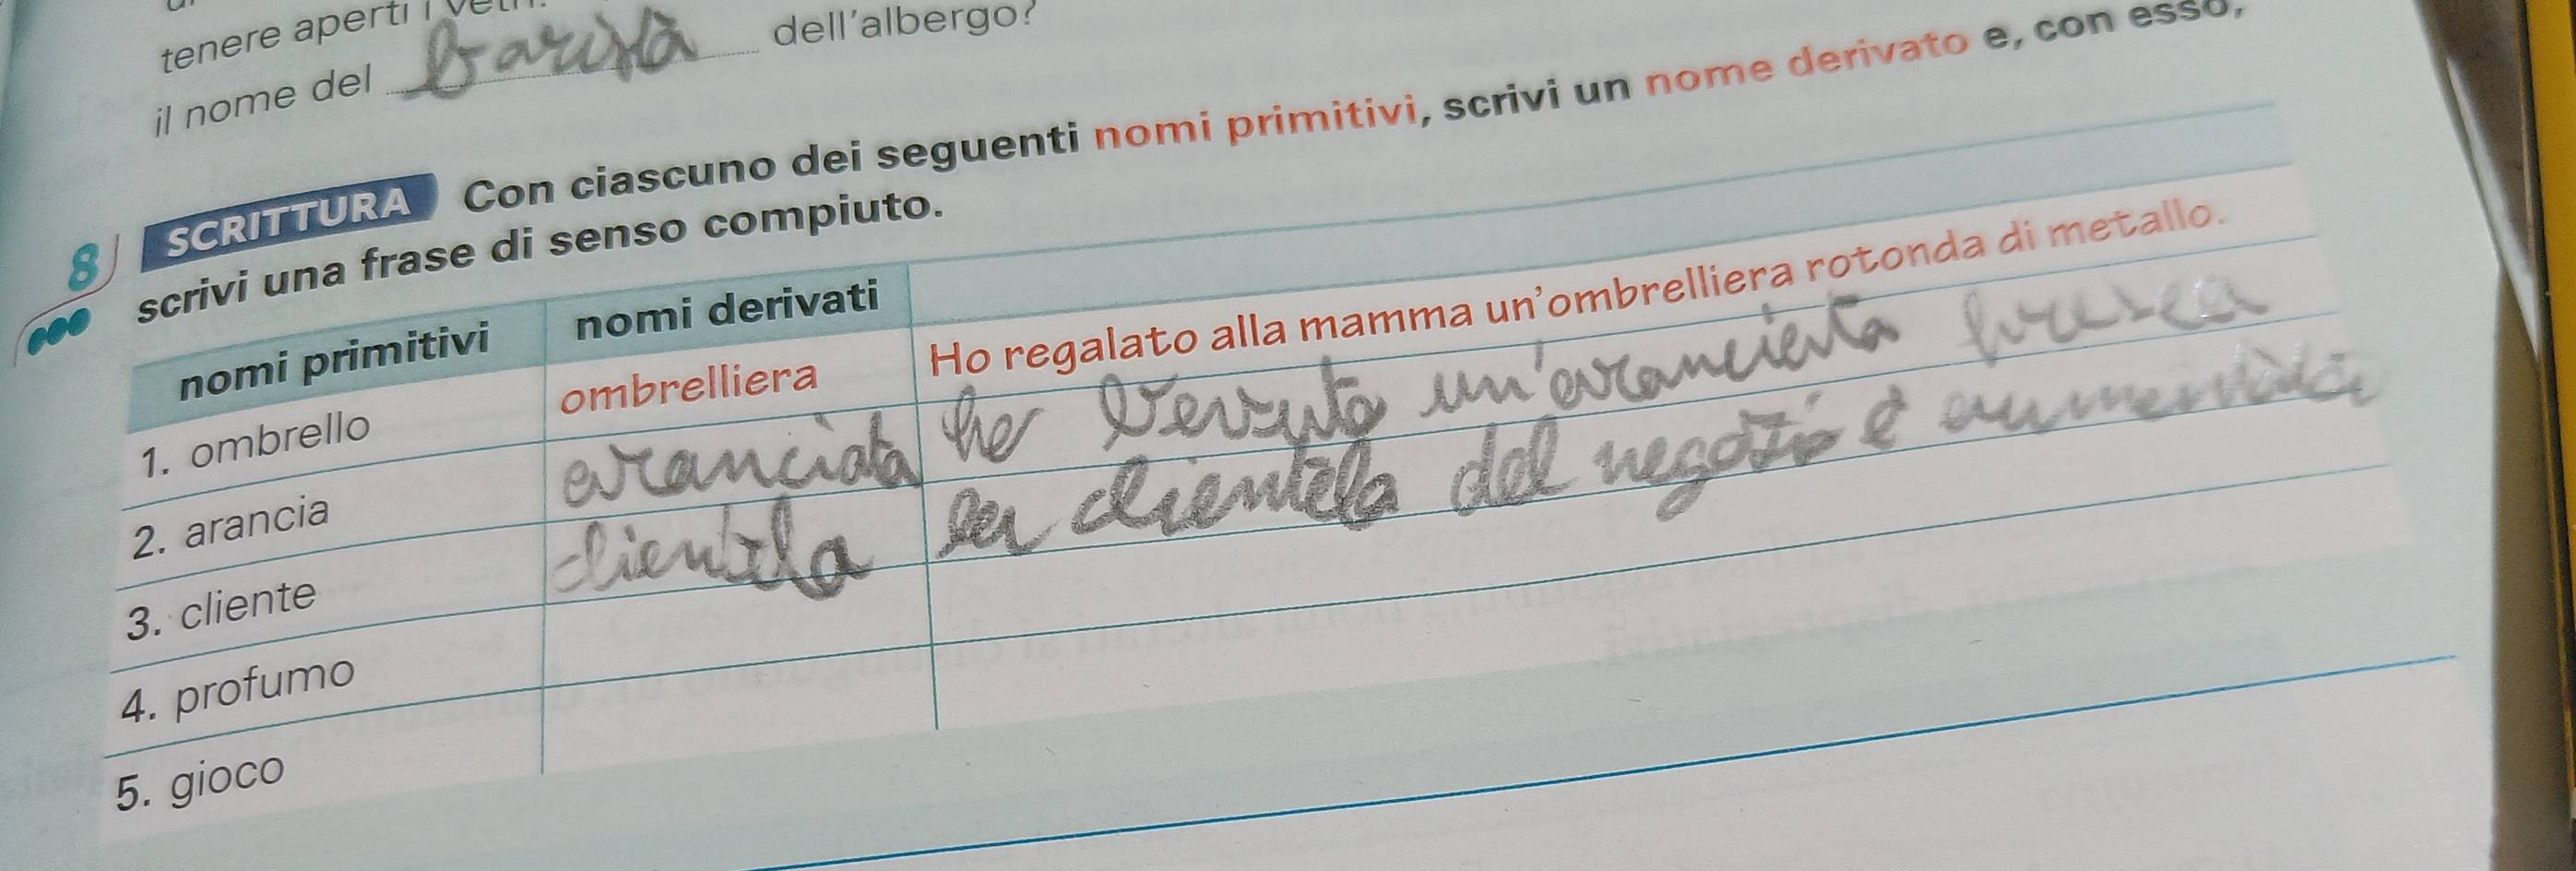 tenere aperti i
il nome del barista dell'albergo?
8 SCRITTURA Con ciascuno dei seguenti nomi primitivi, scrivi un nome derivato e, con esso,
scrivi una frase di senso compiuto.
nomi primitivi nomi derivati
1. ombrello ombrelliera Ho regalato alla mamma un'ombrelliera rotonda di metallo.
2. arancia aranciata ho bevuto un'aranciata fresca
3. cliente clientela la clientela del negozio è
4. profumo
5. gioco